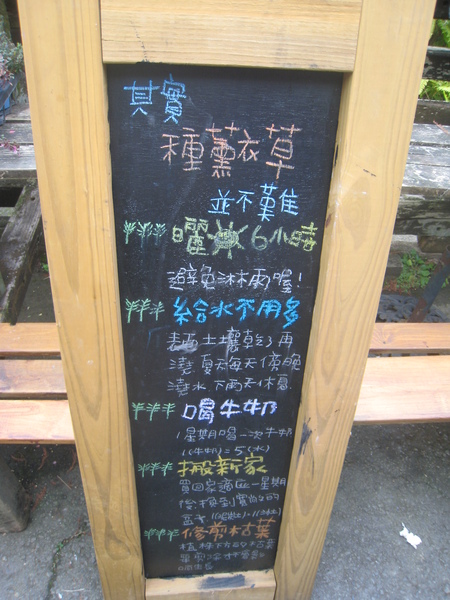 其實
種薰衣草
並不難
曬 6小時
避免淋雨喔!
給水不用多
土壤乾了再
澆 夏天每天傍晚
澆水 下雨天休息
喝牛奶
1星期喝一次牛奶
1(牛奶)=5(水)
搬新家
買回家適應一星期
後換到
修剪枯葉
植株下方的枯葉